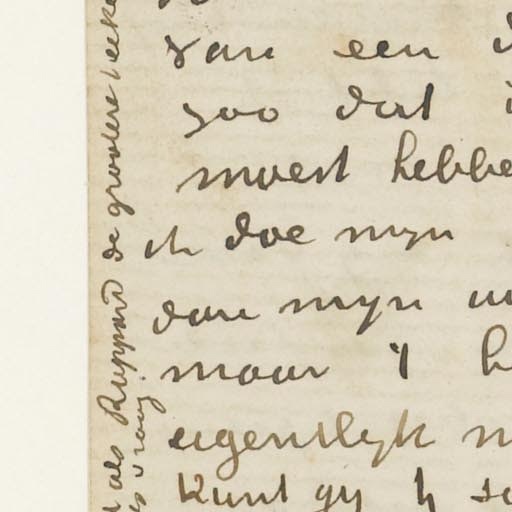 van een
zoo dat
moest hebbe
ik doe myn
dan myn
maar 't h
eigentlyk
kunt gy 't
als Ruppard de grootere
vraag